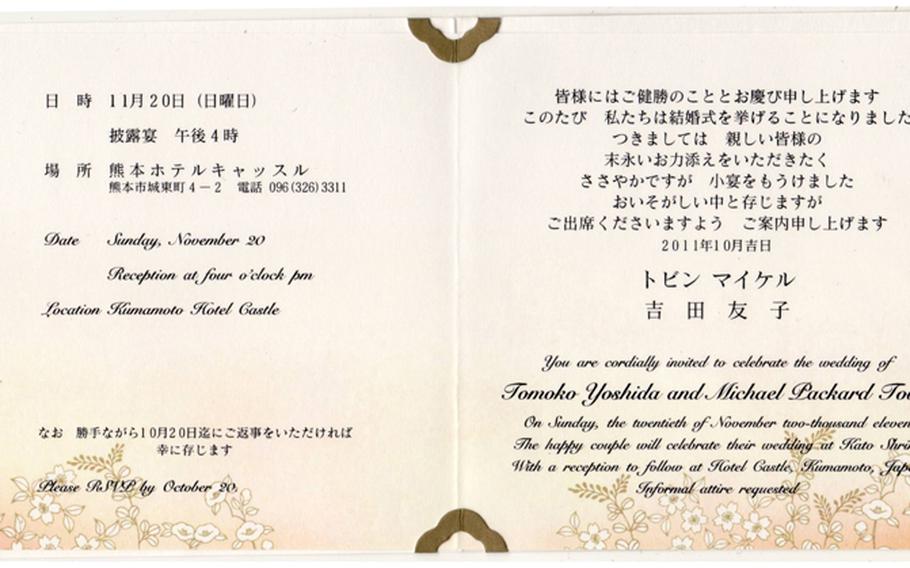 日　時　11月20日（日曜日）
披露宴　午後４時
場　所　熊本ホテルキャッスル
熊本市城東町４－２　電話 096(326)3311
Date Sunday, November 20
Reception at four o'clock pm
Location Kumamoto Hotel Castle
なお　勝手ながら10月20日迄にご返事をいただければ
幸に存じます
Please RSVP by October 20.
皆様にはご健勝のこととお慶び申し上げます
このたび　私たちは結婚式を挙げることになりました
つきましては　親しい皆様の
末永いお力添えをいただきたく
ささやかですが　小宴をもうけました
おいそがしい中と存じますが
ご出席くださいますよう　ご案内申し上げます
2011年10月吉日
トビン マイケル
吉　田　友　子
You are cordially invited to celebrate the wedding of
Tomoko Yoshida and Michael Packard
On Sunday, the twentieth of November two-thousand eleven
The happy couple will celebrate their wedding at Kato
With a reception to follow at Hotel Castle, Kumamoto,
Informal attire requested